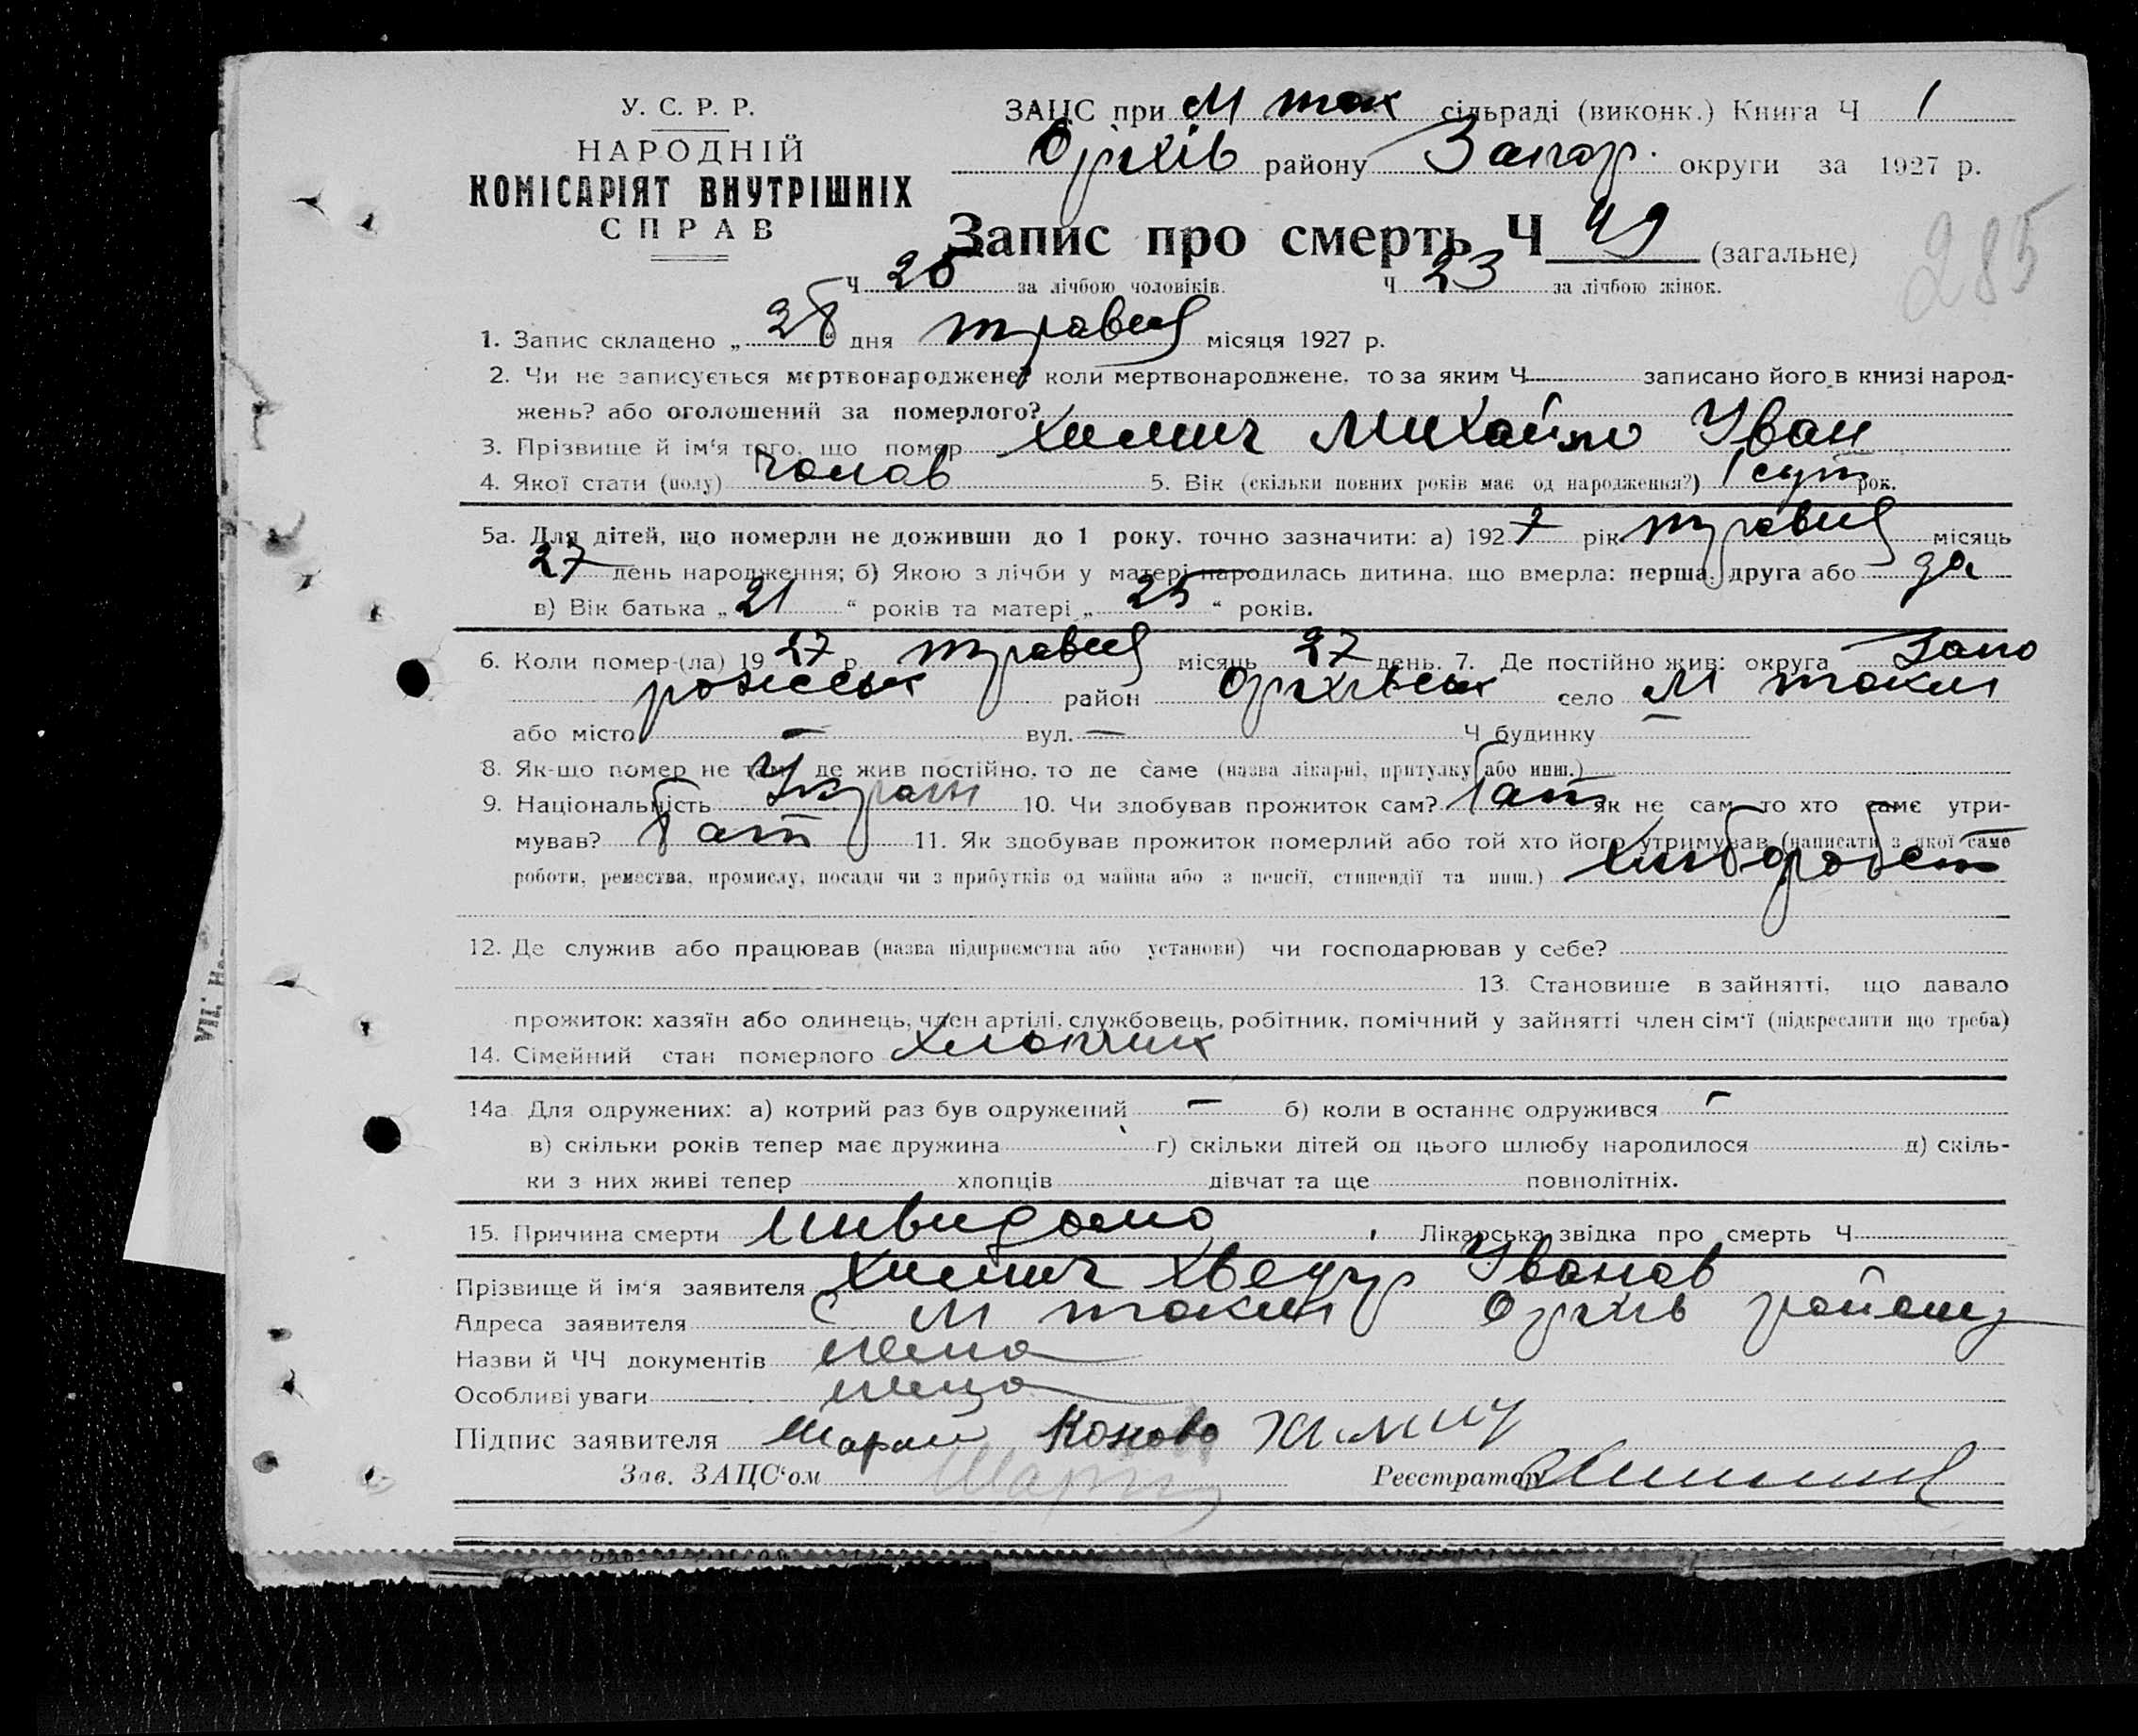 У. С. Р. Р.
НАРОДНІЙ
КОМІСАРІЯТ ВНУТРІШНІХ
СПРАВ
ЗАЦС при М ток сільраді (виконк.) Книга Ч 1
Оріхів району Запор. округи за 1927 р.
Запис про смерть Ч 49 (загальне)
285
Ч 26 за лічбою чоловіків. Ч 23 за лічбою жінок.
1. Запис складено „ 28 " дня травня місяця 1927 р.
2. Чи не записується мертвонароджене? коли мертвонароджене, то за яким Ч записано його в книзі народ-
жень? або оголошений за померлого?
3. Прізвище й ім'я того, що помер Химич Михайло Іван
4. Якої стати (полу) чолов 5. Вік (скільки повних років має од народження?) 1 сут рок.
5а. Для дітей, що померли не доживши до 1 року, точно зазначити: а) 1927 рік травня місяць
27 день народження; б) Якою з лічби у матері народилась дитина, що вмерла: перша, друга або
в) Вік батька „ 21 " років та матері „ 25 " років.
6. Коли помер-(ла) 1927 р. травня місяць 27 день. 7. Де постійно жив: округа Запо
рожськ район Оріхівськ село М токм
або місто — вул. — Ч будинку —
8. Як-що помер не там, де жив постійно, то де саме (назва лікарні, притулку або инш.)
9. Національність Україн 10. Чи здобував прожиток сам? бат як не сам то хто саме утри-
мував? бат 11. Як здобував прожиток померлий або той хто його утримував (написати з якої саме
роботи, ремества, промислу, посади чи з прибутків од майна або з пенсії, стипендії та инш.) хлібороб
12. Де служив або працював (назва підприємства або установи) чи господарював у себе?
13. Становище в зайнятті, що давало
прожиток: хазяїн або одинець, член артілі, службовець, робітник, помічний у зайнятті член сім'ї (підкреслити що треба)
14. Сімейний стан померлого хлопчик
14а Для одружених: а) котрий раз був одружений — б) коли в останнє одружився —
в) скільки років тепер має дружина г) скільки дітей од цього шлюбу народилося д) скіль-
ки з них живі тепер хлопців дівчат та ще повнолітніх.
15. Причина смерти нивидомо Лікарська звідка про смерть Ч
Прізвище й ім'я заявителя Химич Хведур Іванов
Адреса заявителя с М токм Оріхів району
Назви й ЧЧ документів нема
Особливі уваги нема
Підпис заявителя Химич
Зав. ЗАЦС'ом Реєстратор